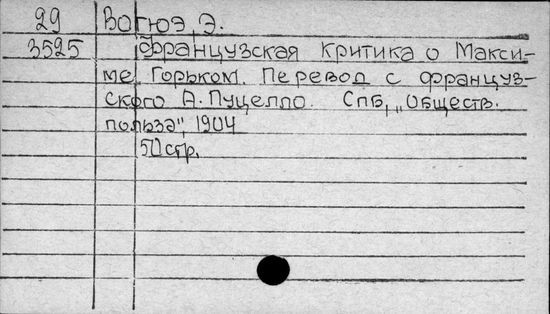 29 Вогюэ, Э.
3525 Французская критика о Макси-
ме Горьком. Перевод с француз-
ского А. Пуцелло. СПб, „Обществ.
польза", 1904
50 стр.